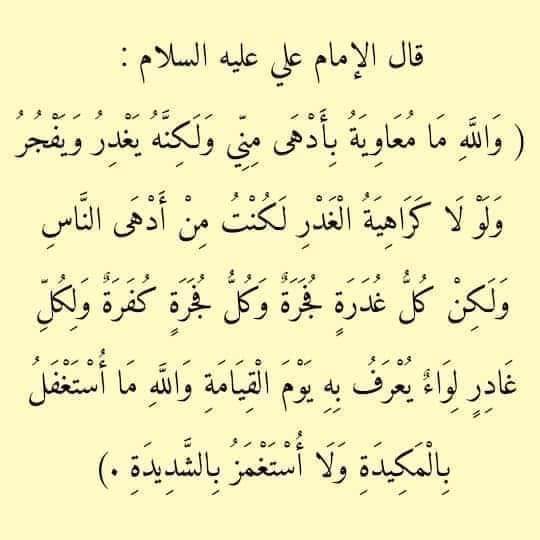 قال الإمام علي عليه السلام :
( وَاللَّهِ مَا مُعَاوِيَةُ بِأَدْهَى مِنِّي وَلَكِنَّهُ يَغْدِرُ وَيَفْجُرُ
وَلَوْ لَا كَرَاهِيَةُ الْغَدْرِ لَكُنْتُ مِنْ أَدْهَى النَّاسِ
وَلَكِنْ كُلُّ غُدَرَةٍ فُجَرَةٌ وَكُلُّ فُجَرَةٍ كُفَرَةٌ وَلِكُلِّ
غَادِرٍ لِوَاءٌ يُعْرَفُ بِهِ يَوْمَ الْقِيَامَةِ وَاللَّهِ مَا أُسْتَغْفَلُ
بِالْمَكِيدَةِ وَلَا أُسْتَغْمَزُ بِالشَّدِيدَةِ .)